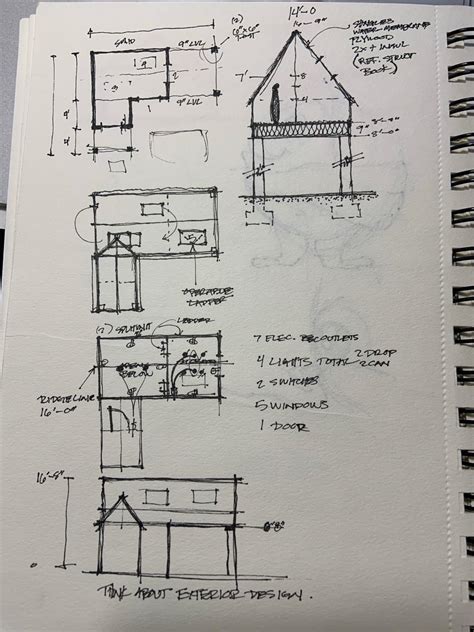 SOLID
9" LVL
(2)
6"x6"
POST
14'-0
SHINGLES
WATER MEMBRANE
PLYWOOD
2X + INSUL
(REF. STRUCT
BOOK)
7'
8
4
9'-0"
8'-0"
9
2
9
1
9" LVL
OPERABLE
LADDER
LADDER
OPEN
BELOW
RIDGELINE
16'-0"
7 ELEC. RECOUTLETS
4 LIGHTS TOTAL 2 DROP
2 CAN
2 SWITCHES
5 WINDOWS
1 DOOR
THINK ABOUT EXTERIOR DESIGN.